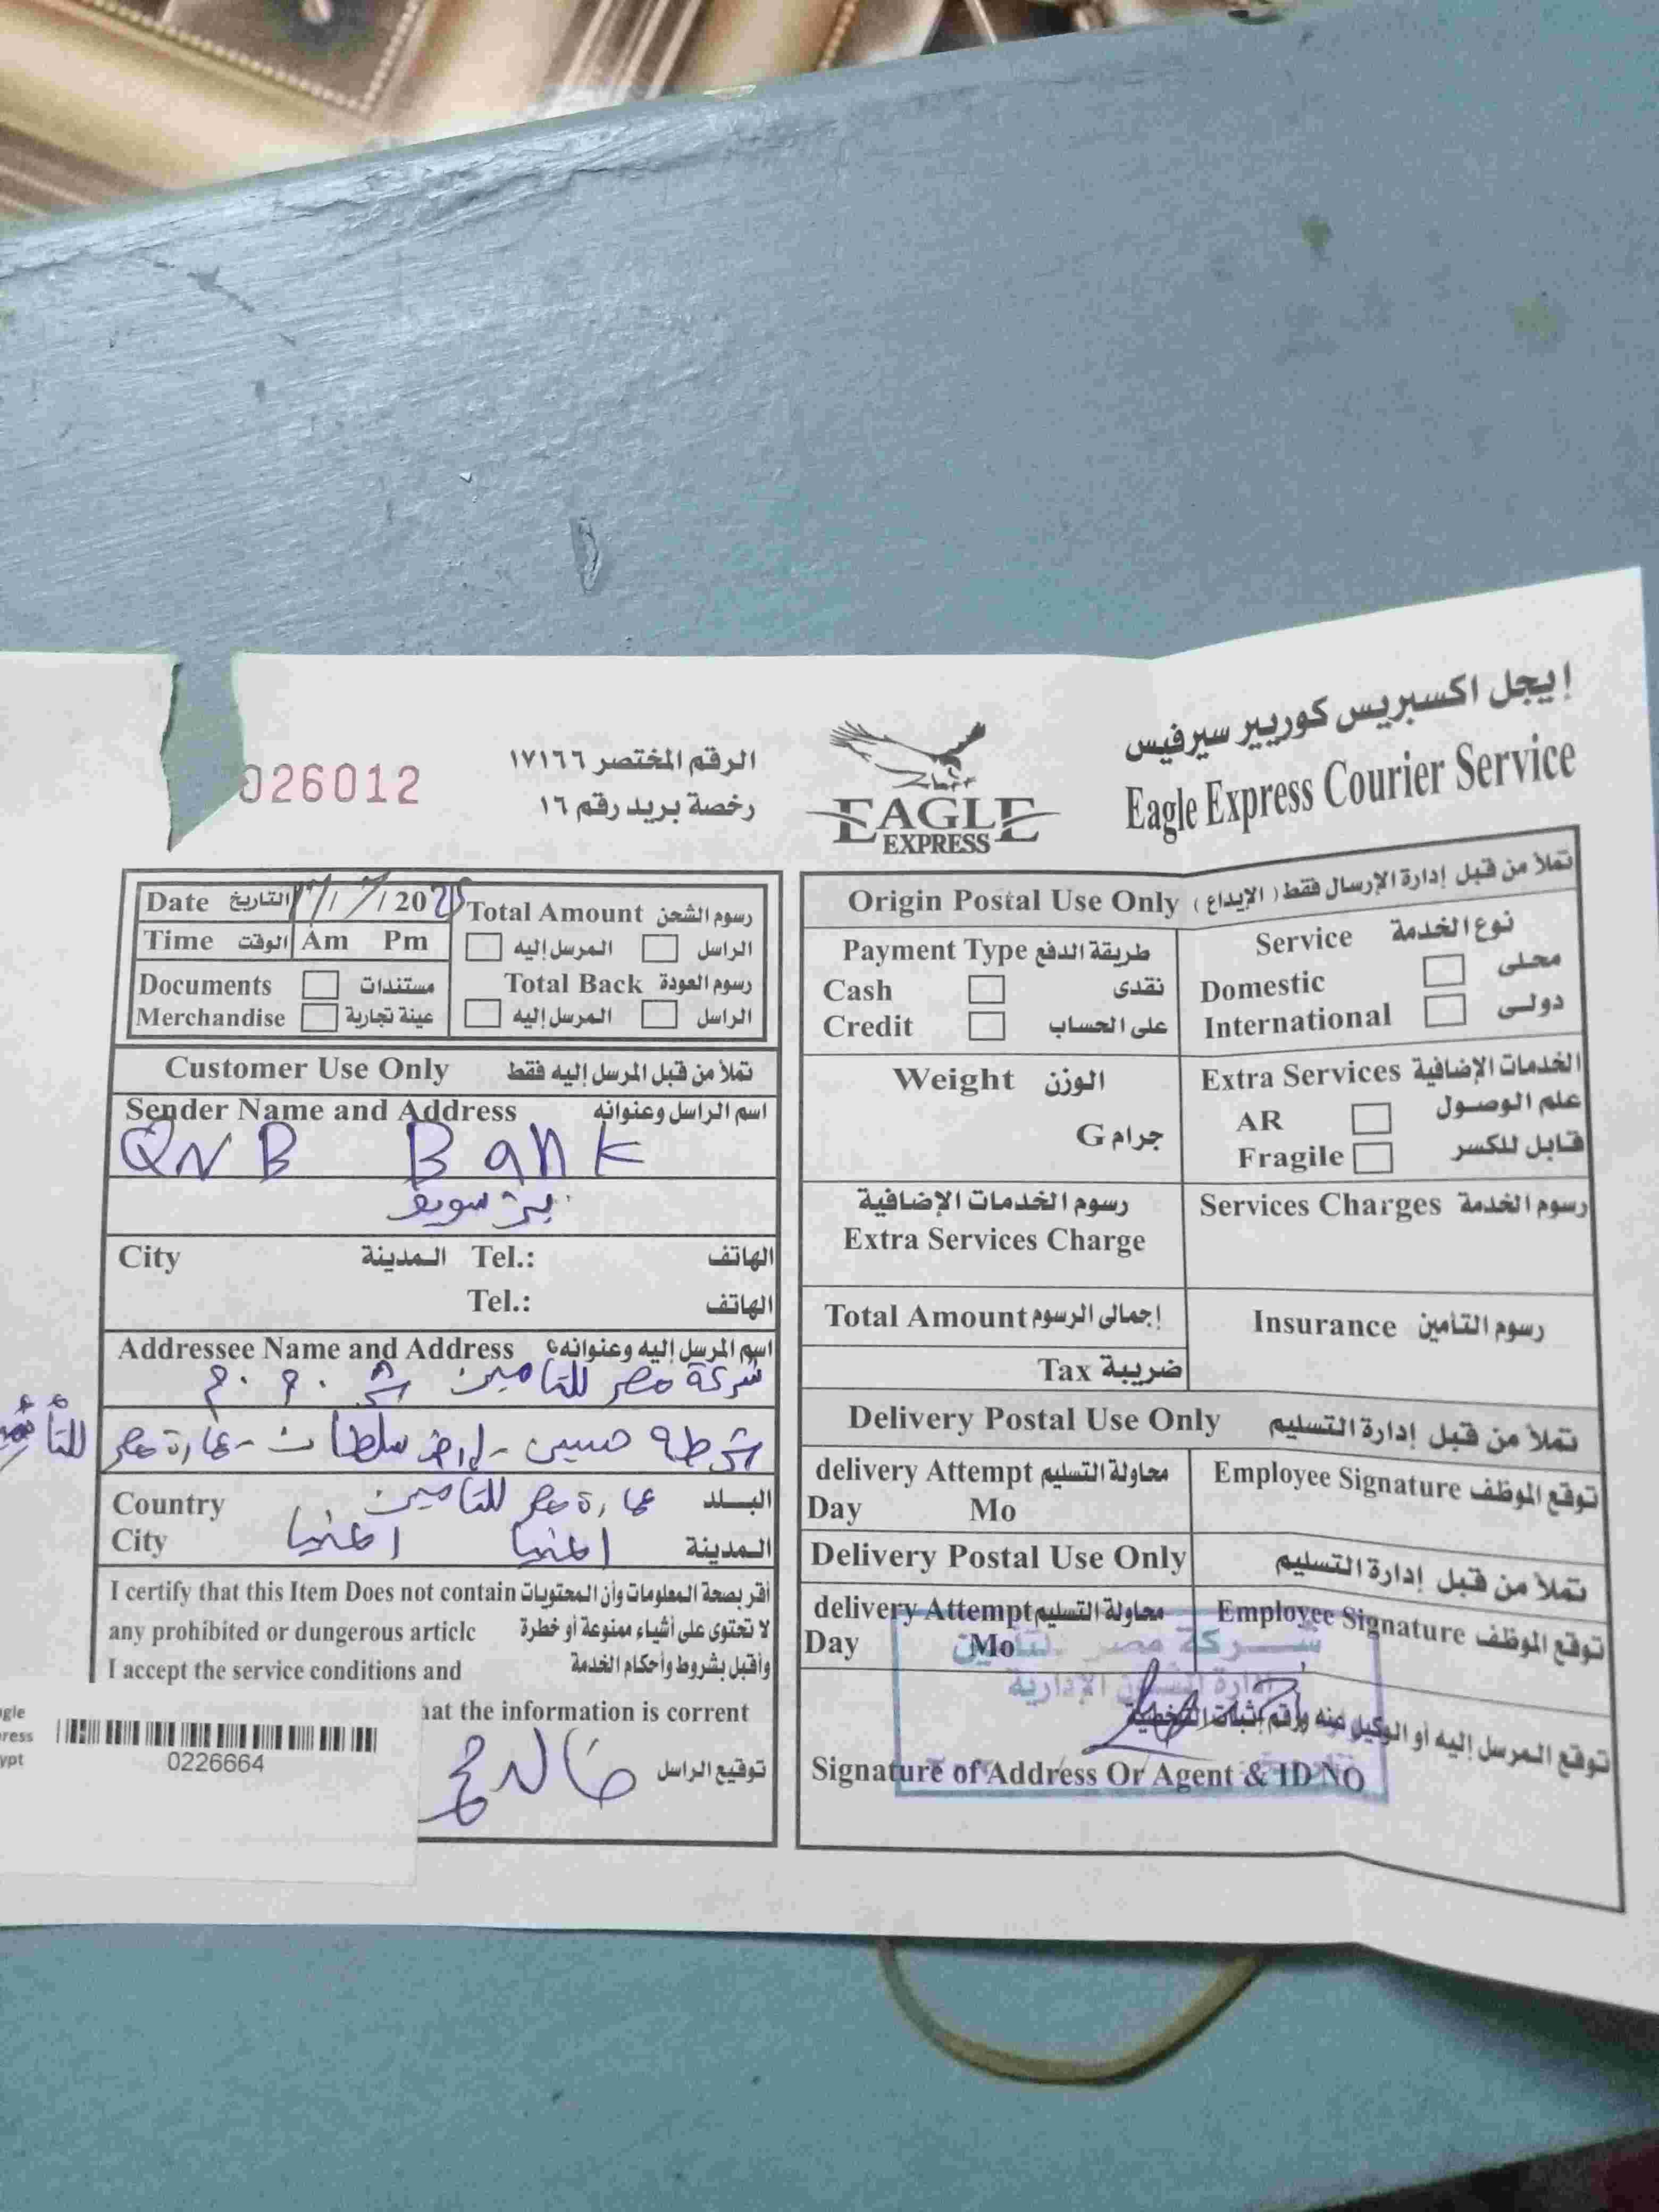 إيجل اكسبريس كوريير سيرفيس
Eagle Express Courier Service
EAGLE
EXPRESS
الرقم المختصر ١٧١٦٦
رخصة بريد رقم ١٦
026012
Date التاريخ / /20
Time الوقت Am Pm
Documents مستندات
Merchandise عينة تجارية
Total Amount رسوم الشحن
المرسل إليه الراسل
Total Back رسوم العودة
المرسل إليه الراسل
Customer Use Only تملأ من قبل المرسل إليه فقط
Sender Name and Address اسم الراسل وعنوانه
QNB Bank
بني سويف
City المدينة Tel.: الهاتف
Tel.: الهاتف
Addressee Name and Address اسم المرسل إليه وعنوانه
شركة مصر للتأمين ش.م.م
أرض سلطان - عمارة مصر للتأمين
Country البلد عمارة مصر للتأمين
City المدينة المنيا المنيا
I certify that this Item Does not contain أقر بصحة المعلومات وأن المحتويات
any prohibited or dungerous article لا تحتوى على أشياء ممنوعة أو خطرة
I accept the service conditions and وأقبل بشروط وأحكام الخدمة
hat the information is corrent
توقيع الراسل
gle
ress
ypt
0226664
Origin Postal Use Only تملأ من قبل إدارة الإرسال فقط ( الإيداع )
Payment Type طريقة الدفع
Cash نقدى
Credit على الحساب
Service نوع الخدمة
Domestic محلى
International دولى
Weight الوزن
جرام G
Extra Services الخدمات الإضافية
AR علم الوصول
Fragile قابل للكسر
رسوم الخدمات الإضافية
Extra Services Charge
Services Charges رسوم الخدمة
Total Amount إجمالى الرسوم
Tax ضريبة
Insurance رسوم التأمين
Delivery Postal Use Only تملأ من قبل إدارة التسليم
delivery Attempt محاولة التسليم
Day Mo
Employee Signature توقع الموظف
Delivery Postal Use Only تملأ من قبل إدارة التسليم
delivery Attempt محاولة التسليم
Day Mo
Employee Signature توقع الموظف
شركة مصر للتأمين
الإدارية
توقع المرسل إليه أو الوكيل عنه ورقم إثبات الشخصية
Signature of Address Or Agent & ID NO